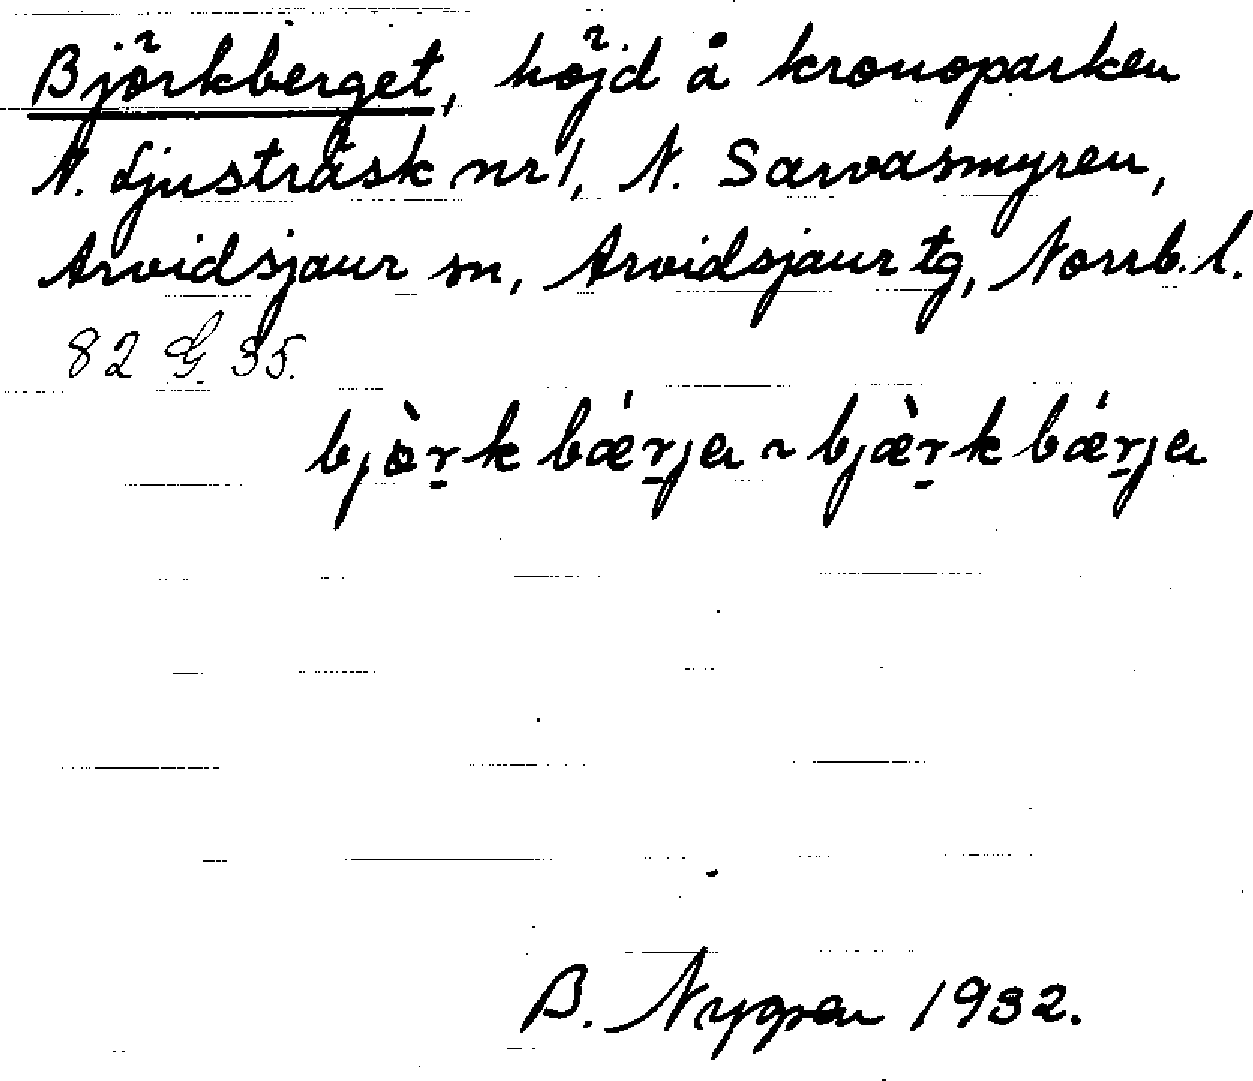 Björkberget, höjd å kronoparken
N. Ljusträsk nr 1, N. Sarvasmyren,
Arvidsjaur sn, Arvidsjaur tg, Norrb. l.
82 G 35.
bjòr̠k bæŕ̠ja ~ bjæ̀r̠k bæŕ̠ja
B. Nygren 1932.